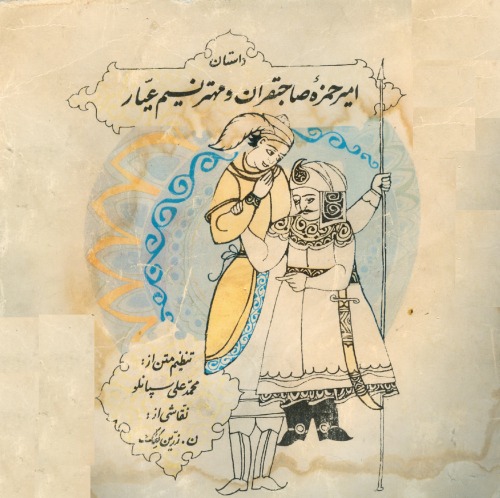 داستان
امیر حمزهٔ صاحبقران و مهتر نسیم عیّار
تنظیم متن از:
محمد علی سپانلو
نقاشی از:
ن. زرین کلک